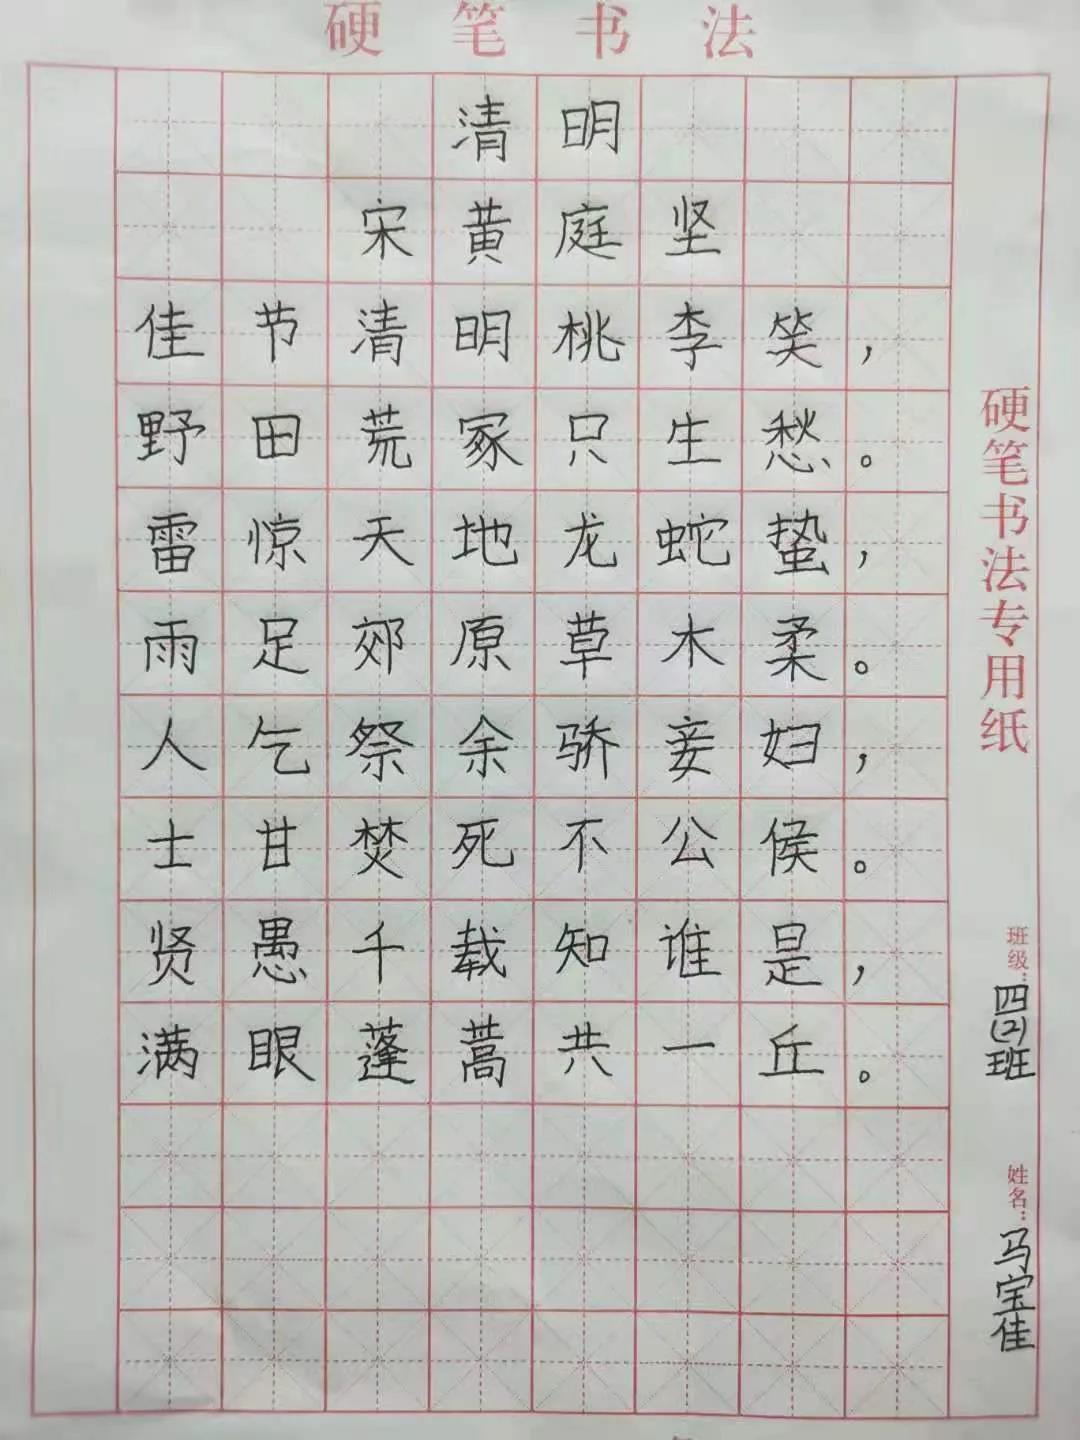 硬笔书法
清明
宋黄庭坚
佳节清明桃李笑，
野田荒冢只生愁。
雷惊天地龙蛇蛰，
雨足郊原草木柔。
人乞祭余骄妾妇，
士甘焚死不公侯。
贤愚千载知谁是，
满眼蓬蒿共一丘。
硬笔书法专用纸
班级：四(2)班
姓名：马宝佳